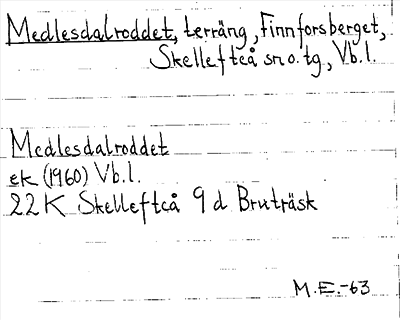 Medlesdalroddet, terräng, Finnforsberget,
Skellefteå sn o. tg, Vb.l.
Medlesdalroddet
ek (1960) Vb.l.
22 K Skellefteå 9 d Bruträsk
M.E.-63